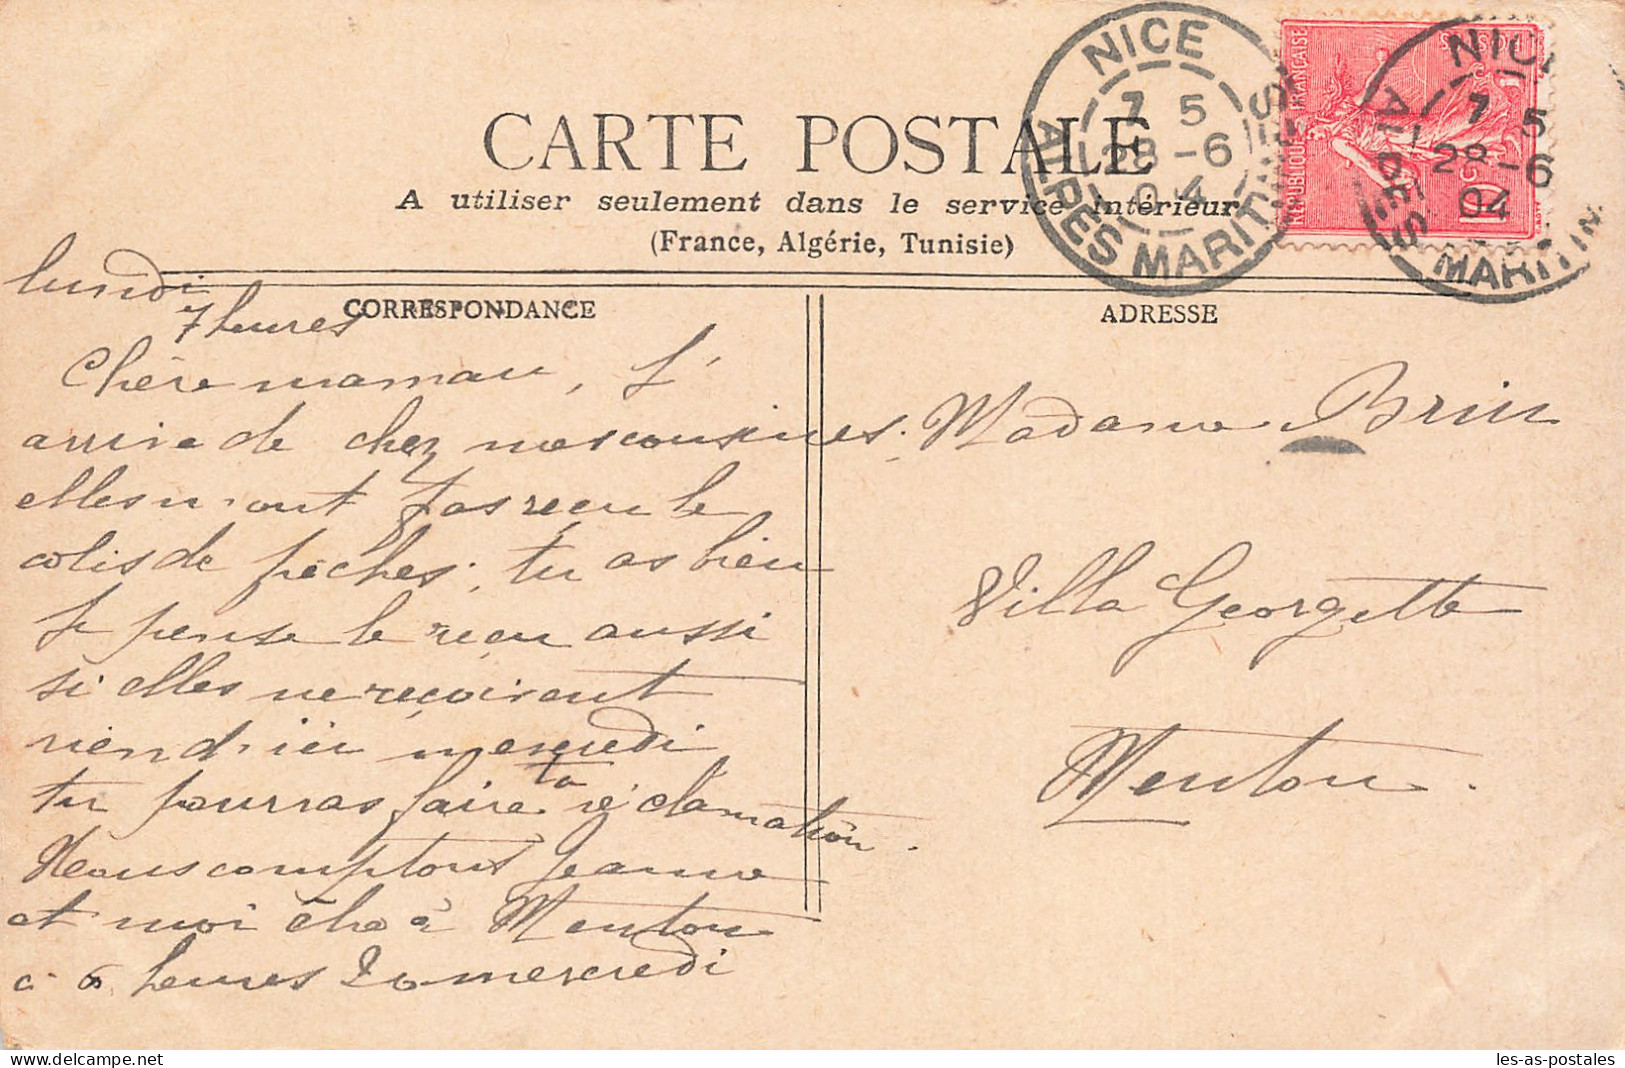 CARTE POSTALE
A utiliser seulement dans le service intérieur
(France, Algérie, Tunisie)
NICE
7 5
28 -6
04
ALPES MARITIMES
REPUBLIQUE FRANÇAISE
POSTES
10 C
NICE
7 5
28 -6
04
ALPES MARITIM
CORRESPONDANCE
lundi
7 heures
Chère maman, J'
arrive de chez mes cousines.
elles n'ont pas reçu le
colis de pêches; tu as bien
je pense le reçu aussi
si elles ne reçoivent
rien d'ici mercredi
tu pourras faire ta réclamation.
Nous comptons Jeanne
et moi être à Menton
à 6 heures 20 mercredi
ADRESSE
Madame Brin
Villa Georgette
Menton.
delcampe.net
les-as-postales